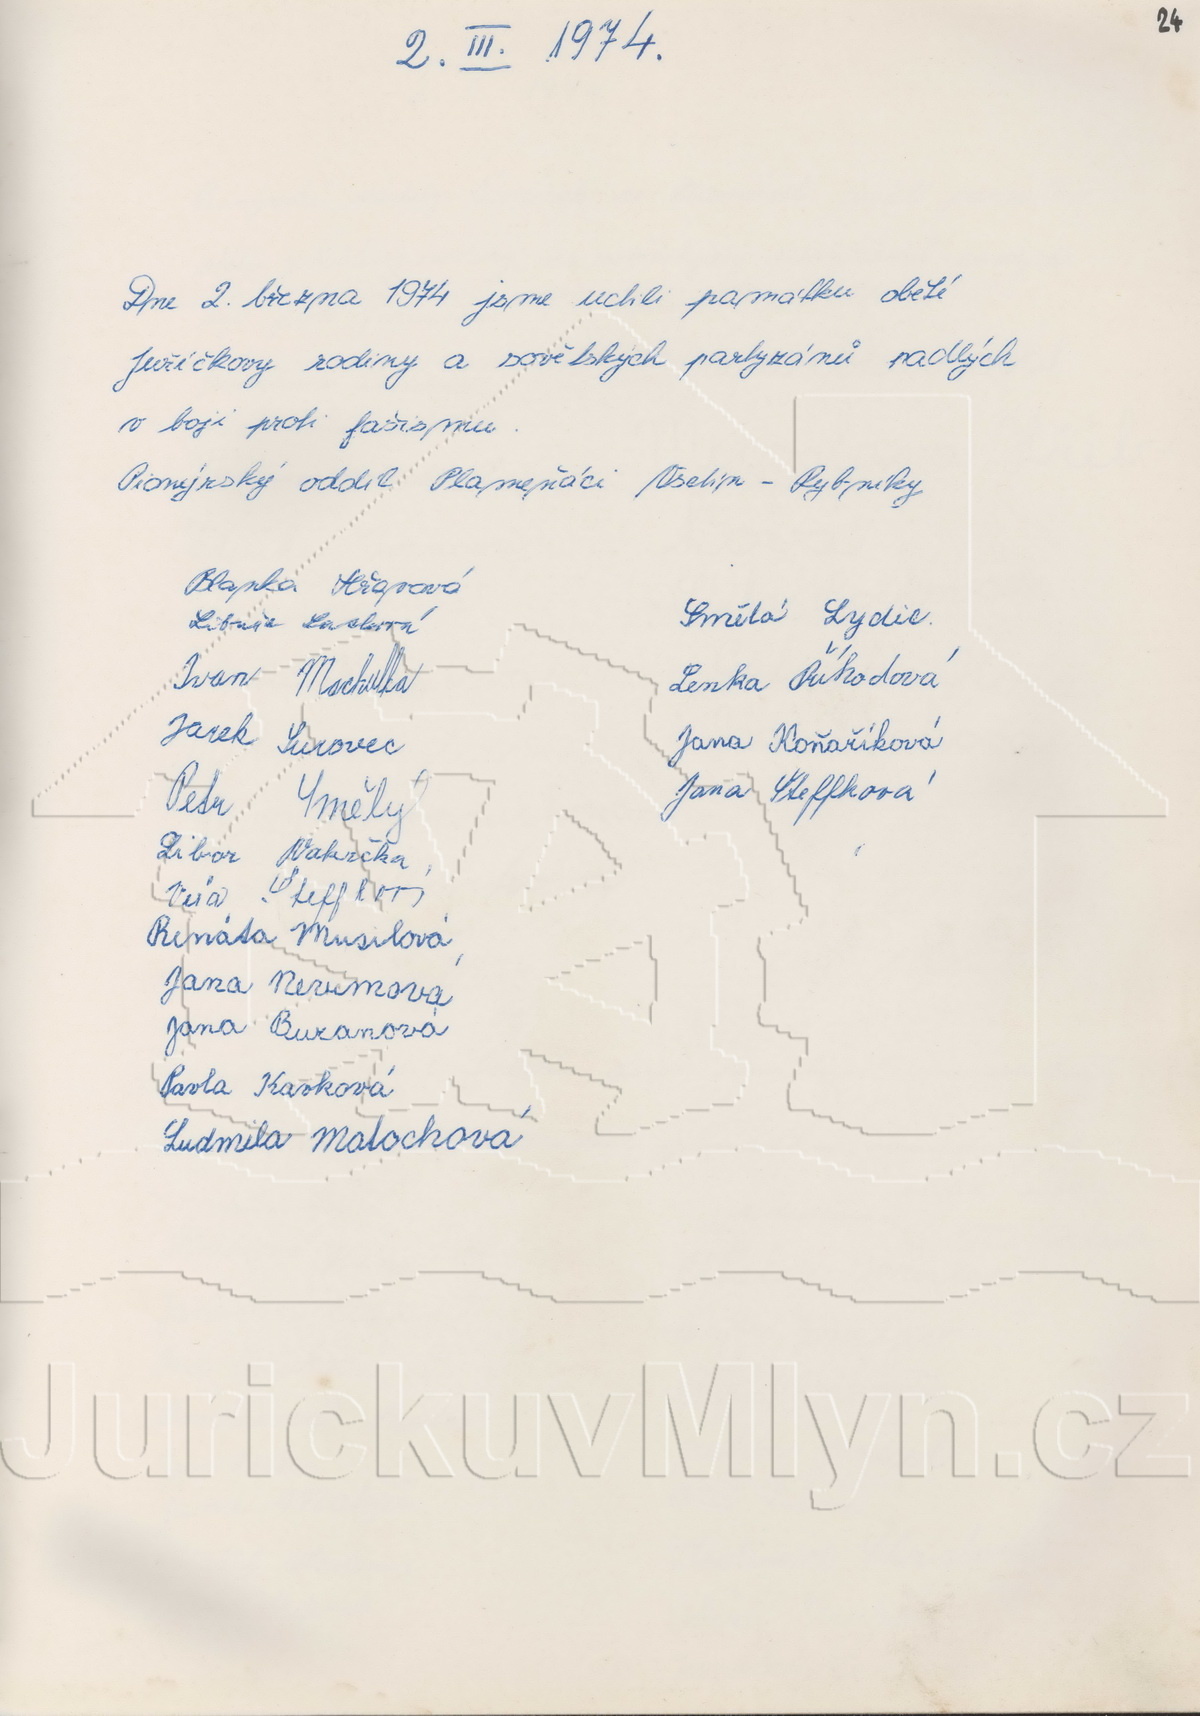 24
2. III. 1974.
Dne 2. března 1974 jsme uctili památku obětí
Juříčkovy rodiny a sovětských partyzánů padlých
v boji proti fašismu.
Pionýrský oddíl Plameňáci Vsetín - Rybníky
Blanka
Ivan Machulka
Jarek Surovec
Petr Smělý
Libor
Renáta Musilová
Jana Nevímová
Jana Buzanová
Pavla Kavková
Ludmila Matochová
Smělá Lydie.
Lenka Příhodová
Jana Koňaříková
Jana Šteffková
JurickuvMlyn.cz